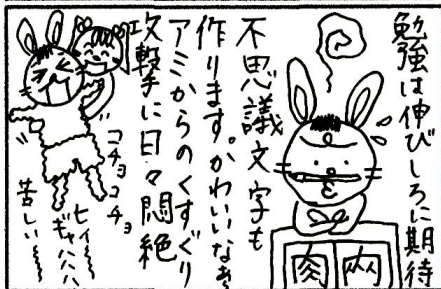 勉強は伸びしろに期待
不思議文字も
作ります。かわいいなあ
アミからのくすぐり
攻撃に日々悶絶
コチョコチョ
ヒィ〜
ギャハハハ
苦しい〜
肉